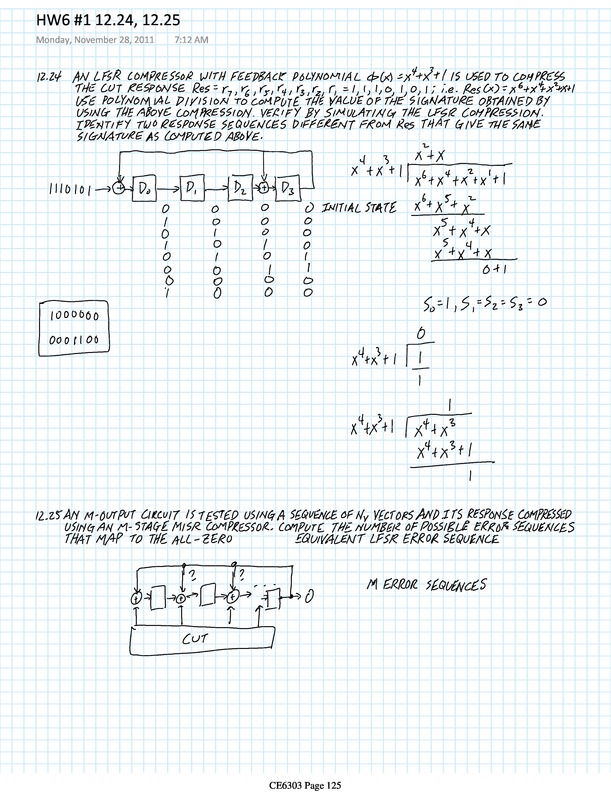 HW6 #1 12.24, 12.25
Monday, November 28, 2011 7:12 AM
12.24 AN LFSR COMPRESSOR WITH FEEDBACK POLYNOMIAL Φ(x) = x⁴+x³+1 IS USED TO COMPRESS
THE CUT RESPONSE Res = r₇, r₆, r₅, r₄, r₃, r₂, r₁ = 1,1,1,0,1,0,1; i.e. Res(x) = x⁶+x⁴+x²+x+1
USE POLYNOMIAL DIVISION TO COMPUTE THE VALUE OF THE SIGNATURE OBTAINED BY
USING THE ABOVE COMPRESSION. VERIFY BY SIMULATING THE LFSR COMPRESSION.
IDENTIFY TWO RESPONSE SEQUENCES DIFFERENT FROM Res THAT GIVE THE SAME
SIGNATURE AS COMPUTED ABOVE.
1110101 → + D₀ D₁ D₂ + D₃
0 0 0 0 INITIAL STATE
1 0 0 0
0 1 0 0
1 0 1 0
0 1 0 1
0 0 1 1
0 0 0 0
1 0 0 0
x²+x
x⁴+x³+1 x⁶+x⁴+x²+x¹+1
x⁶+x⁵+x²
x⁵+x⁴+x
x⁵+x⁴+x
0+1
S₀=1, S₁=S₂=S₃=0
1000000
0001100
0
x⁴+x³+1 1
1
1
x⁴+x³+1 x⁴+x³
x⁴+x³+1
1
12.25 AN M-OUTPUT CIRCUIT IS TESTED USING A SEQUENCE OF Nᵥ VECTORS AND ITS RESPONSE COMPRESSED
USING AN M-STAGE MISR COMPRESSOR. COMPUTE THE NUMBER OF POSSIBLE ERROR SEQUENCES
THAT MAP TO THE ALL-ZERO EQUIVALENT LFSR ERROR SEQUENCE
? ?
+ + + ... 0
CUT
M ERROR SEQUENCES
CE6303 Page 125